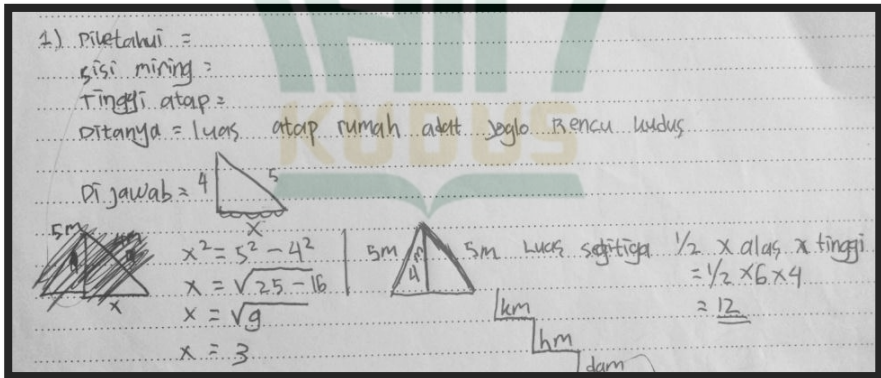 1) Diketahui =
sisi miring =
Tinggi atap =
Ditanya = luas atap rumah adat joglo Pencu kudus
KUDUS
Di jawab = 4 5
x
5m
x
x² = 5² - 4²
x = √25 - 16
x = √9
x = 3
5m 4 m 5m
Luas segitiga 1/2 x alas x tinggi
= 1/2 x 6 x 4
= 12
km
hm
dam